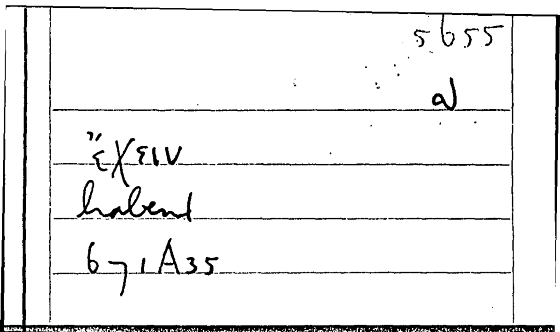 5655
a
ἔχειν
habend
671A35